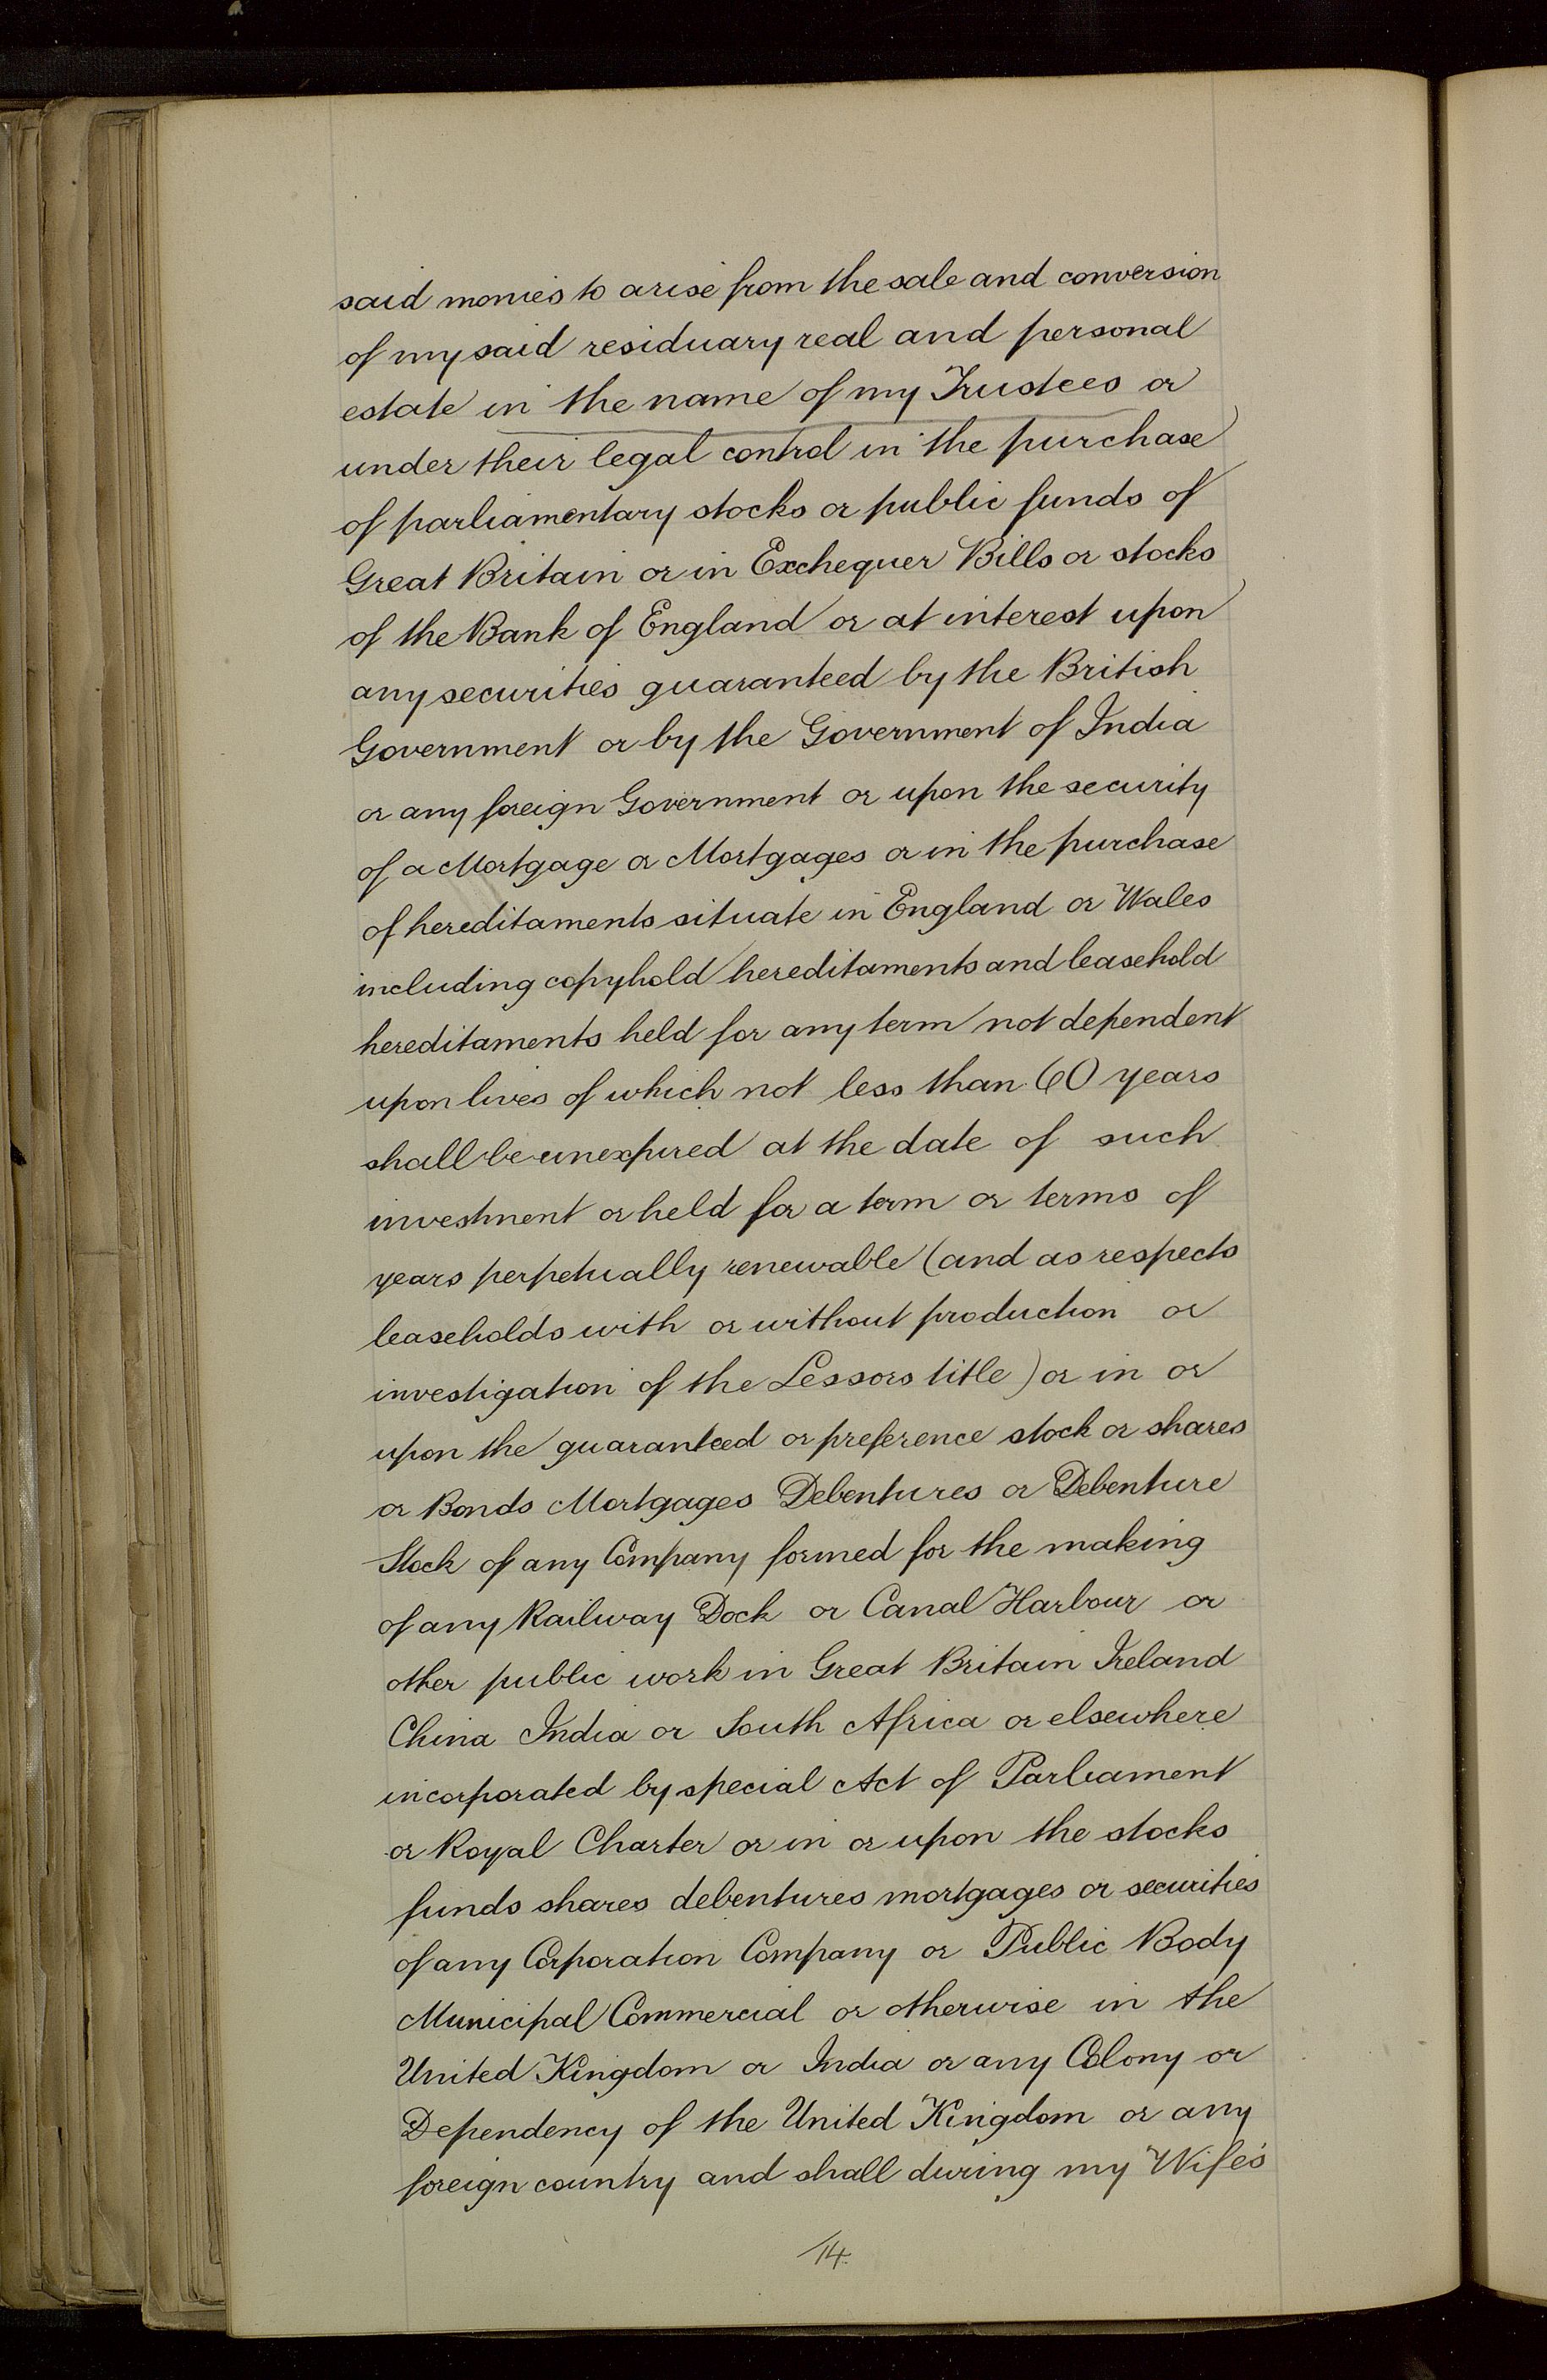 said monies to arise from the sale and conversion
of my said residuary real and personal
estate in the name of my Trustees or
under their legal control in the purchase
of parliamentary stocks or public funds of
Great Britain or in Exchequer Bills or stocks
of the Bank of England or at interest upon
any securities guaranteed by the British
Government or by the Government of India
or any foreign Government or upon the security
of a Mortgage or Mortgages or in the purchase
of hereditaments situate in England or Wales
including copyhold hereditaments and leasehold
hereditaments held for any term not dependent
upon lives of which not less than 60 years
shall be unexpired at the date of such
investment or held for a term or terms of
years perpetually renewable (and as respects
leaseholds with or without production or
investigation of the Lessors title) or in or
upon the guaranteed or preference stock or shares
or Bonds Mortgages Debentures or Debenture
Stock of any Company formed for the making
of any Railway Dock or Canal Harbour or
other public work in Great Britain Ireland
China India or South Africa or elsewhere
incorporated by special Act of Parliament
or Royal Charter or in or upon the stocks
funds shares debentures mortgages or securities
of any Corporation Company or Public Body
Municipal Commercial or otherwise in the
United Kingdom or India or any Colony or
Dependency of the United Kingdom or any
foreign country and shall during my Wife's
14.